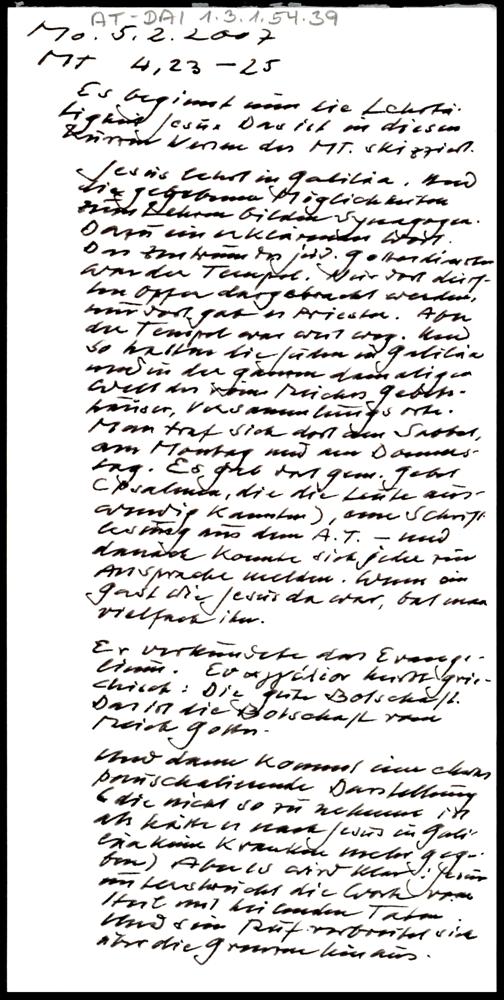 AT-DAI 1.3.1.54.39
Mo. 5.2.2007
Mt 4,23-25
Es beginnt nun die Lehrtä-
tigkeit Jesu. Das ist in diesen
kurzen Versen des MT. skizziert.
Jesus lehrt in Galiläa. Und
die gegebenen Möglichkeiten
zum Lehren bilden Synagogen.
Dazu ein erklärendes Wort.
Das Zentrum des jüd. Gottesdienstes
war der Tempel. Nur dort durf-
ten Opfer dargebracht werden,
nur dort gab es Priester. Aber
der Tempel war weit weg. Und
so hatten die Juden in Galiläa
und in der ganzen damaligen
Welt des röm. Reiches Gebets-
häuser, Versammlungsorte.
Man traf sich dort am Sabbat,
am Montag und am Donners-
tag. Es gab dort gem. Gebet
(Psalmen, die die Leute aus-
wendig kannten), eine Schrift-
lesung aus dem A.T. - und
danach konnte sich jeder zur
Ansprache melden. Wenn ein
Gast wie Jesus da war, bat man
vielfach ihn.
Er verkündete das Evange-
lium. Ευαγγέλιον heißt grie-
chisch: Die gute Botschaft.
Das ist die Botschaft vom
Reich Gottes.
Und dann kommt eine etwas
pauschalierende Darstellung
(die nicht so zu nehmen ist
als hätte es nach Jesus in Gali-
läa keine Kranken mehr gege-
ben) Aber es wird klar: Jesus
unterstreicht die Worte vom
Heil mit heilenden Taten.
Und sein Ruf verbreitet sich
über die Grenzen hinaus.